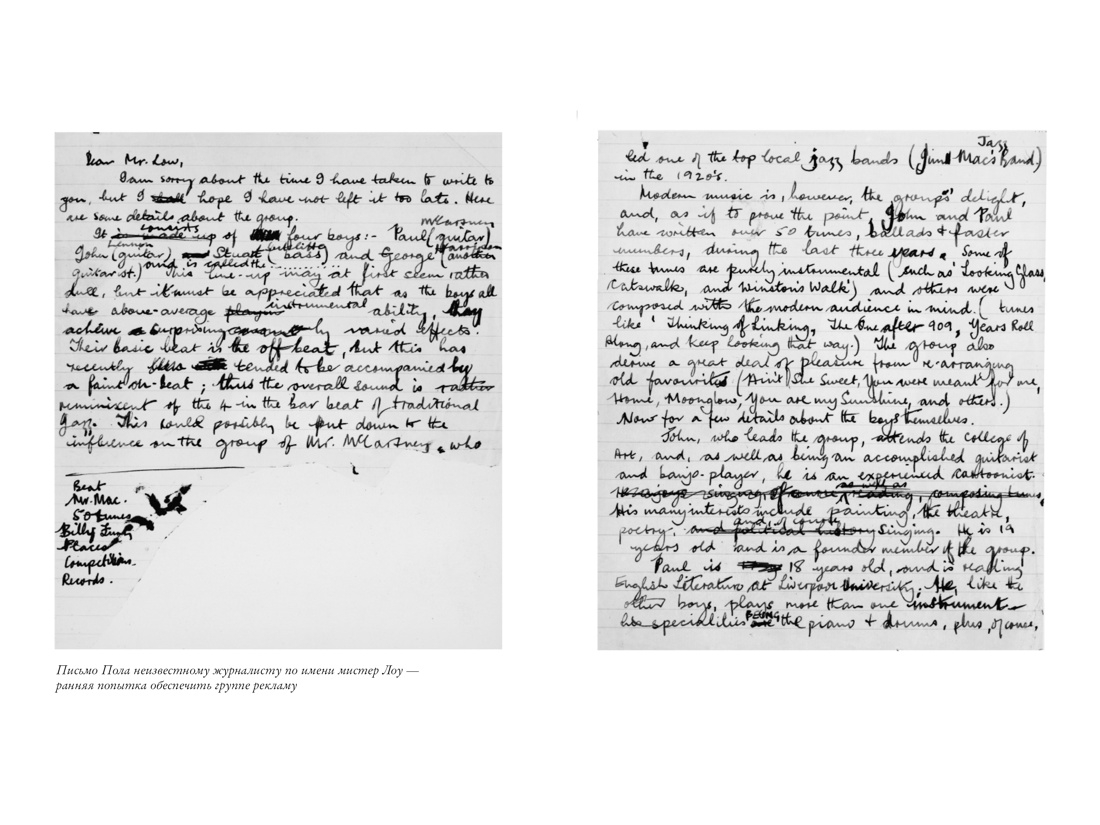 Dear Mr. Low,
I am sorry about the time I have taken to write to
you, but I shall hope I have not left it too late. Here
are some details about the group.
McCartney
consists
It is made up of four boys:- Paul (guitar)
Lennon Sutcliffe Harrison
John (guitar) and Stuart (bass) and George (another
and is called the ......
guitarist.) This line-up may at first seem rather
dull, but it must be appreciated that as the boys all
instrumental
have above-average playing ability, they
achieve a surprising by varied effects.
Their basic beat is the off beat, but this has
recently tended to be accompanied by
a faint on-beat; thus the overall sound is rather
reminiscent of the 4 in the bar beat of traditional
Jazz. This could possibly be put down to the
influence on the group of Mr. McCartney, who
Beat
Mr. Mac.
50 tunes
Billy Fury
Places
Competitions.
Records.
Jazz
led one of the top local jazz bands (Jim Mac's Band)
in the 1920's.
Modern music is, however, the group's delight,
and, as if to prove the point, John and Paul
have written over 50 tunes, ballads & faster
numbers, during the last three years. Some of
these tunes are purely instrumental (such as 'Looking Glass,
Catswalk, and Winston's Walk') and others were
composed with the modern audience in mind. (tunes
like 'Thinking of Linking, The One after 909, Years Roll
Along, and Keep looking that way.) The group also
derive a great deal of pleasure from re-arranging
old favourites (Ain't She Sweet, You were meant for me,
Home, Moonglow, You are my Sunshine, and others.)
Now for a few details about the boys themselves.
John, who leads the group, attends the College of
Art, and, as well as being an accomplished guitarist
and banjo-player, he is an experienced cartoonist.
as well as
He enjoys singing, of course reading, composing tunes,
His many interests include painting, the theatre,
and, of course,
poetry, and political history singing. He is 19
years old and is a founder member of the group.
Paul is 18 years old, and is reading
English Literature at Liverpool University. He, like the
other boys, plays more than one instrument -
BEING
his specialities are the piano & drums, plus, of course,
Письмо Пола неизвестному журналисту по имени мистер Лоу —
ранняя попытка обеспечить группе рекламу